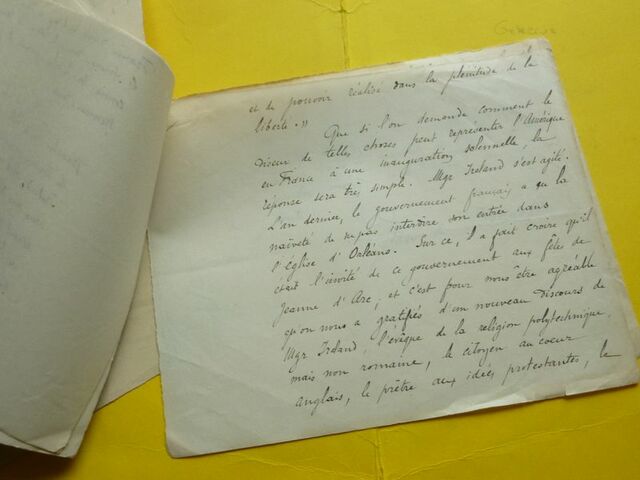 et de pouvoir réalisé dans la plénitude de la
liberté. »
Que si l'on demande comment le
diseur de telles choses peut représenter l'Amérique
en France à une inauguration solennelle, la
reponse sera très simple. Mgr Ireland s'est agité.
L'an dernier, le gouvernement français a eu la
naïveté de ne pas interdire son entrée dans
l'église d'Orléans. Sur ce, il a fait croire qu'il
était l'invité de ce gouvernement aux fêtes de
Jeanne d'Arc, et c'est pour nous être agréable
qu'on nous a gratifiés d'un nouveau discours de
Mgr Ireland, l'évêque de la religion polytechnique,
mais non romaine, le citoyen au coeur
anglais, le prêtre aux idées protestantes, le